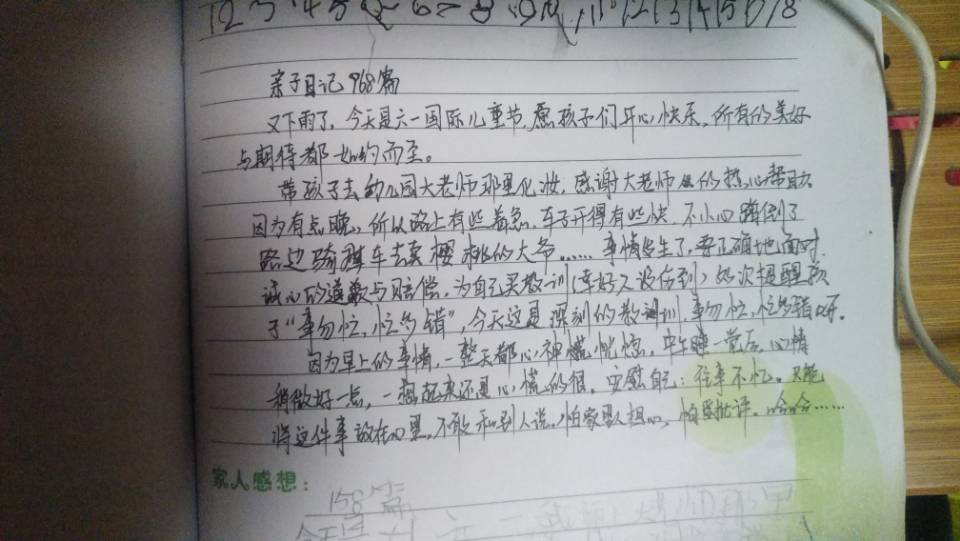 亲子日记968篇
又下雨了，今天是六一国际儿童节，愿孩子们开心快乐，所有的美好
与期待都如约而至。
带孩子去幼儿园大老师那里化妆，感谢大老师的热心帮助
因为有点晚，所以路上有些着急，车子开得有些快，不小心蹭倒了
路边骑车去卖樱桃的大爷……事情发生了，要正确地面对
诚心的道歉与赔偿，为自己买教训（幸好人没伤到）多次提醒孩
子“事勿忙，忙多错”，今天这是深刻的教训，事勿忙，忙多错呀。
因为早上的事情，一整天都心神慌恍惚，中午睡一觉后，心情
稍微好一点，一想起来还是心慌的很，安慰自己：往事不忆。只能
将这件事放在心里，不敢和别人说，怕家里人担心，怕受批评，哈哈……
家人感想：
158篇
今天